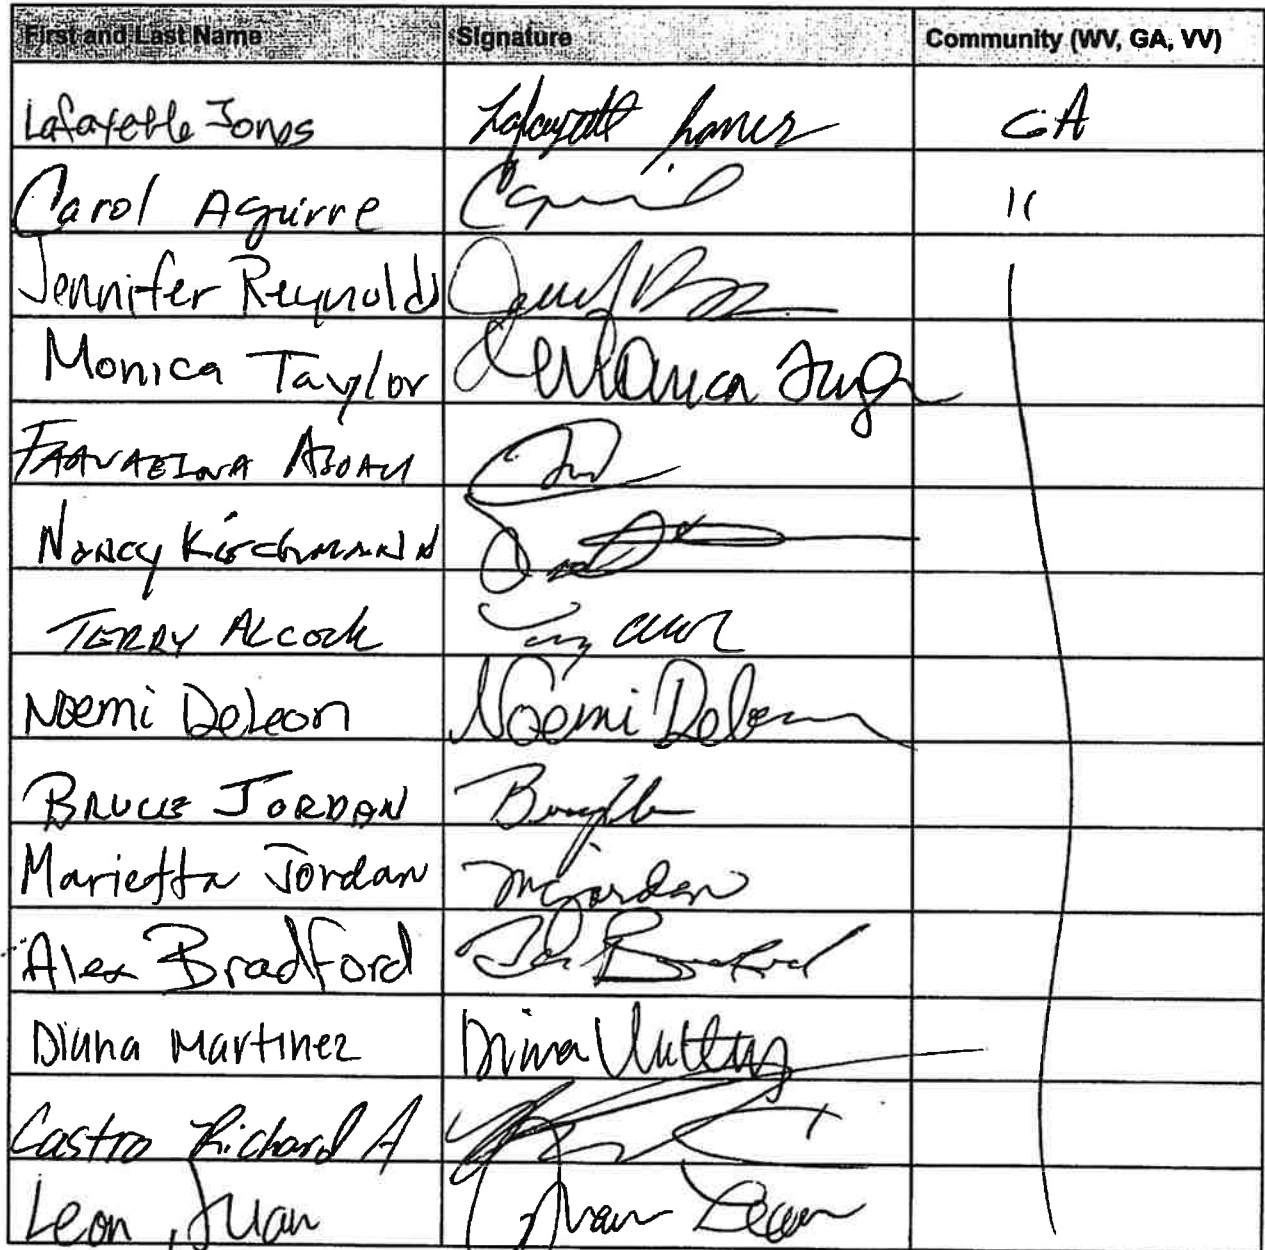 First and Last Name Signature Community (WV, GA, VV)
Lafayette Jones Lafayette Jones GA
Carol Aguirre "
Jennifer Reynolds
Monica Taylor Monica
Nancy Kirschmann
TERRY ALCOCK
Noemi DeLeon Noemi DeLeon
BRUCE JORDAN
Marietta Jordan MJordan
Alex Bradford Bradford
Diana Martinez Diana
Castro Richard A
Leon, Juan Juan Leon